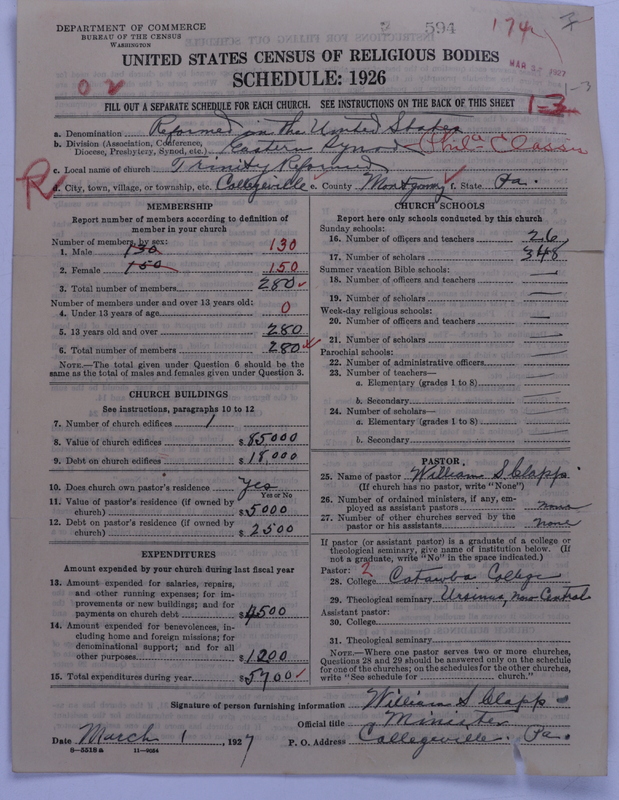 DEPARTMENT OF COMMERCE
BUREAU OF THE CENSUS
WASHINGTON
594
174
MAR 1927
1-3
UNITED STATES CENSUS OF RELIGIOUS BODIES
SCHEDULE: 1926
02
FILL OUT A SEPARATE SCHEDULE FOR EACH CHURCH. SEE INSTRUCTIONS ON THE BACK OF THIS SHEET
1-3
a. Denomination Reformed in the United States
b. Division (Association, Conference, Diocese, Presbytery, Synod, etc.) Eastern Synod Phila Classis
c. Local name of church Trinity Reformed
R
d. City, town, village, or township, etc. Collegeville e. County Montgomery f. State Pa.
MEMBERSHIP
Report number of members according to definition of
member in your church
Number of members by sex:
1. Male 130 130
2. Female 150 150
3. Total number of members 280
Number of members under and over 13 years old:
4. Under 13 years of age 0
5. 13 years old and over 280
6. Total number of members 280
NOTE.—The total given under Question 6 should be
same as the total of males and females given under Question 3.
CHURCH BUILDINGS
See instructions, paragraphs 10 to 12
7. Number of church edifices 1
8. Value of church edifices $85000
9. Debt on church edifices $18,000
10. Does church own pastor's residence Yes
Yes or No
11. Value of pastor's residence (if owned by
church) $5000
12. Debt on pastor's residence (if owned by
church) $2500
EXPENDITURES
Amount expended by your church during last fiscal year
13. Amount expended for salaries, repairs,
and other running expenses; for im-
provements or new buildings; and for
payments on church debt $4500
14. Amount expended for benevolences, in-
cluding home and foreign missions; for
denominational support; and for all
other purposes $1200
15. Total expenditures during year $5700
CHURCH SCHOOLS
Report here only schools conducted by this church
Sunday schools:
16. Number of officers and teachers 26
17. Number of scholars 348
Summer vacation Bible schools:
18. Number of officers and teachers —
19. Number of scholars —
Week-day religious schools:
20. Number of officers and teachers —
21. Number of scholars —
Parochial schools:
22. Number of administrative officers —
23. Number of teachers—
a. Elementary (grades 1 to 8) —
b. Secondary —
24. Number of scholars—
a. Elementary (grades 1 to 8) —
b. Secondary —
PASTOR
25. Name of pastor William S Clapp
(If church has no pastor, write "None")
26. Number of ordained ministers, if any, em-
ployed as assistant pastors none
27. Number of other churches served by the
pastor or his assistants none
If pastor (or assistant pastor) is a graduate of a college or
theological seminary, give name of institution below. (If
not a graduate, write "No" in the space indicated.)
Pastor: 2
28. College Catawba College
29. Theological seminary Ursinus, now Central
Assistant pastor:
30. College
31. Theological seminary
NOTE.—Where one pastor serves two or more churches,
Questions 28 and 29 should be answered only on the schedule
for one of the churches; on the schedules for the other churches,
write "See schedule for church."
Signature of person furnishing information William S Clapp
Official title Minister
Date March 1, 1927 P. O. Address Collegeville Pa.
8-5518a 11-9084